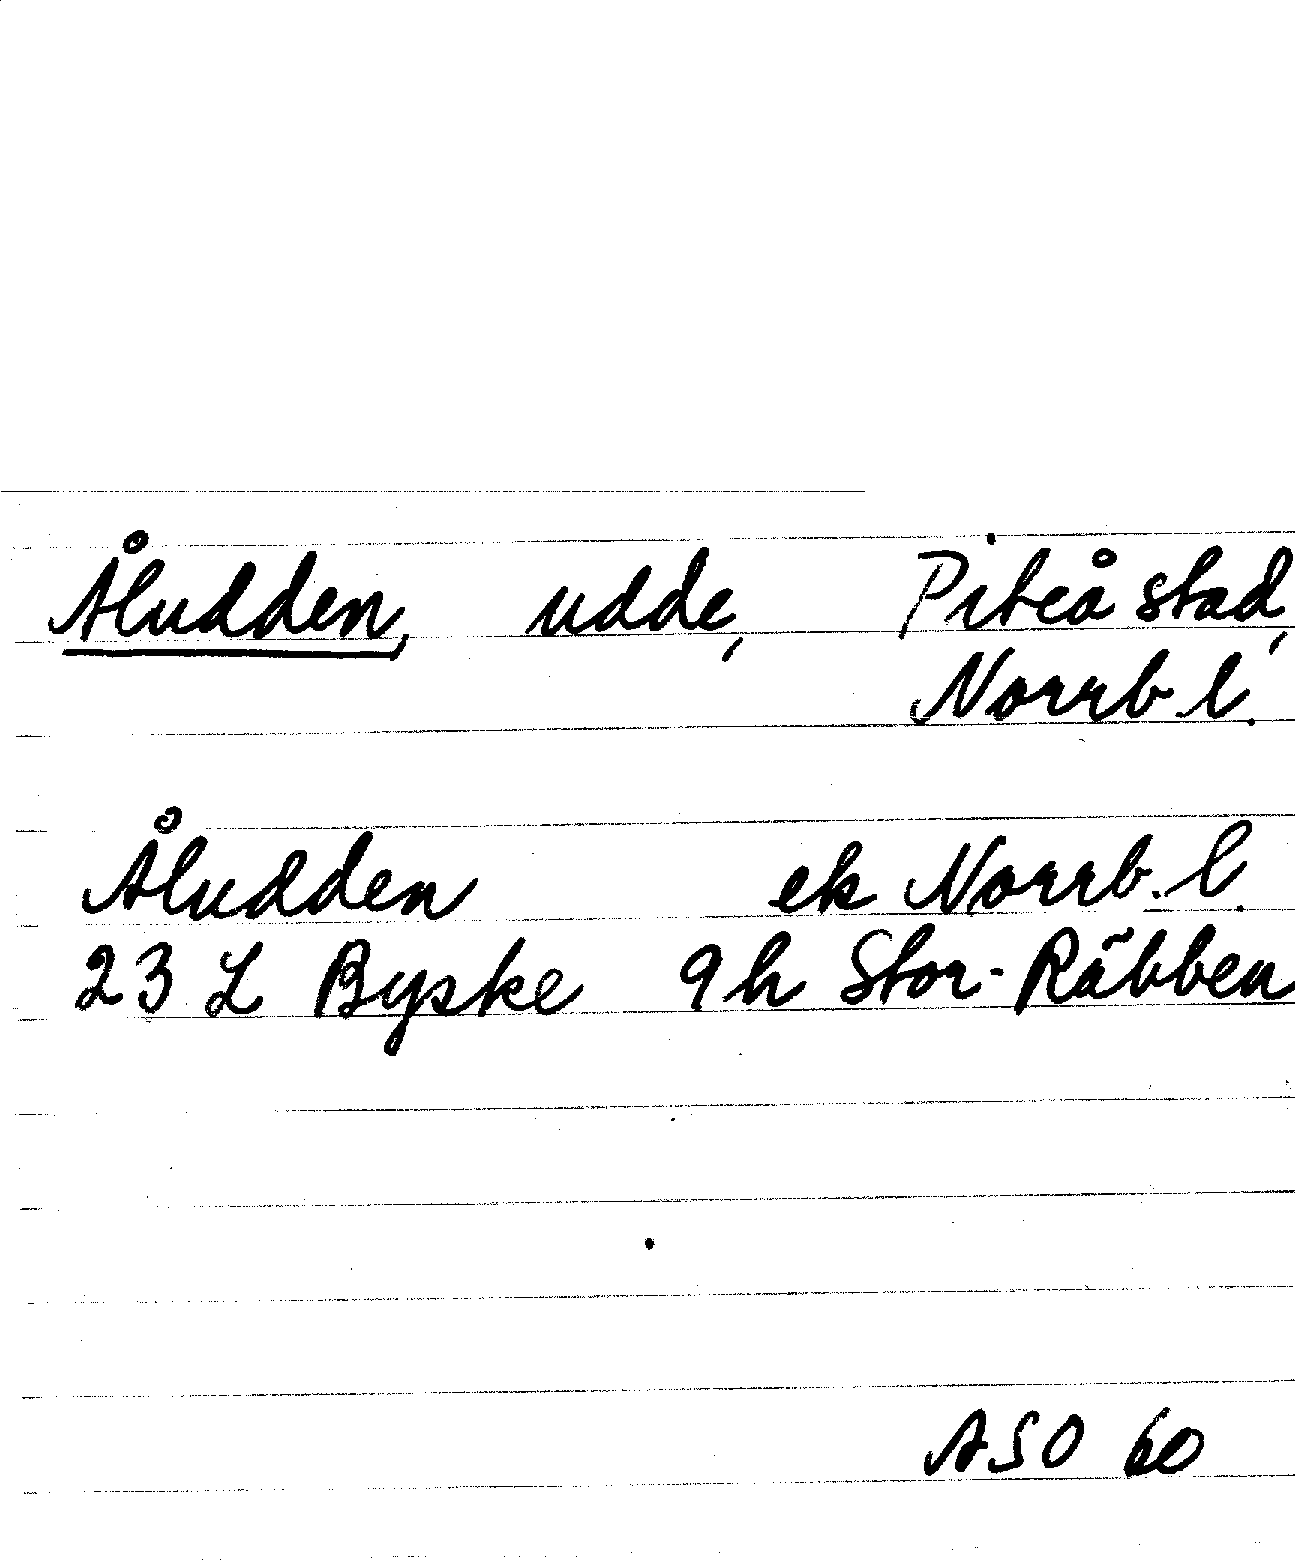 Åludden, udde, Piteå stad,
Norrb. l.
Åludden ek Norrb. l.
23 L Byske 9h Stor-Räbben
ASO 60